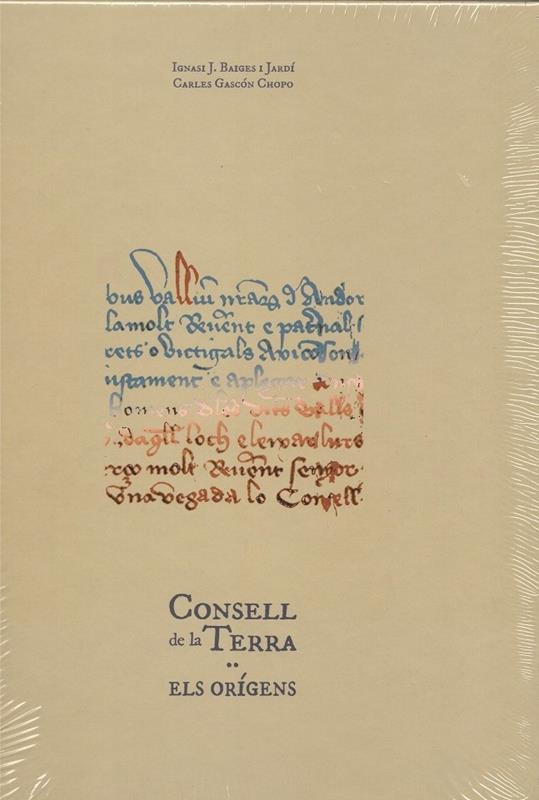 Ignasi J. Baiges i Jardí
Carles Gascón Chopo
bus valliū nr̄aȝ d' Andor
la molt Reuēnt e pat̄nal
rets o victigals
iustament e aplegar
homens
loch e leuar lurs
molt Reuēnt senyor
vna vegada lo Consell
Consell
de la Terra
..
els orígens